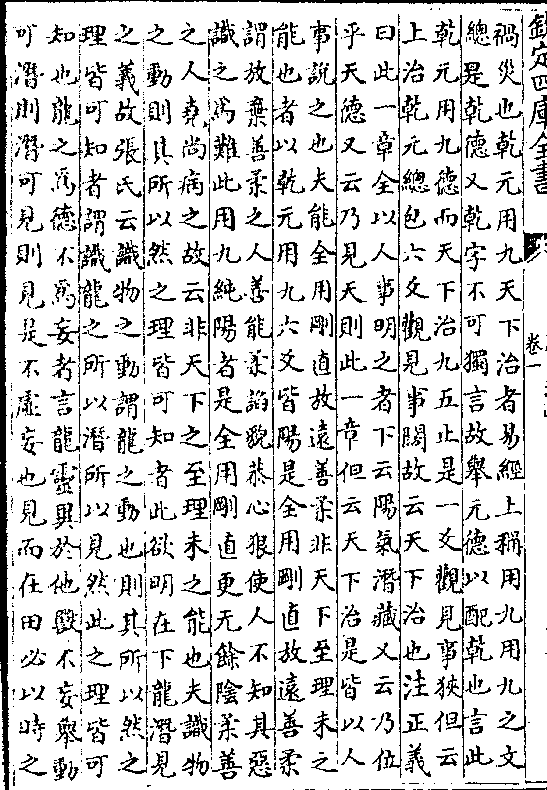 欽定四庫全書
卷一
禍災也乾元用九天下治者易經上稱用九用九之文
總是乾德又乾字不可獨言故舉元德以配乾也言此
乾元用九德而天下治九五止是一爻觀見事狹但云
上治乾元總包六爻觀見事闊故云天下治也注正義
曰此一章全以人事明之者下云陽氣潛藏又云乃位
乎天德又云乃見天則此一章但云天下治是皆以人
事說之也夫能全用剛直放遠善柔非天下至理未之
能也者以乾元用九六爻皆陽是全用剛直放遠善柔
謂放棄善柔之人善能柔諂貌恭心狠使人不知其惡
識之為難此用九純陽者是全用剛直更无餘陰柔善
之人堯尚病之故云非天下之至理未之能也夫識物
之動則其所以然之理皆可知者此欲明在下龍潛見
之義故張氏云識物之動謂龍之動也則其所以然之
理皆可知者謂識龍之所以潛所以見然此之理皆可
知也龍之為德不為妄者言龍靈異於他獸不妄舉動
可潛則潛可見則見是不虛妄也見而在田必以時之